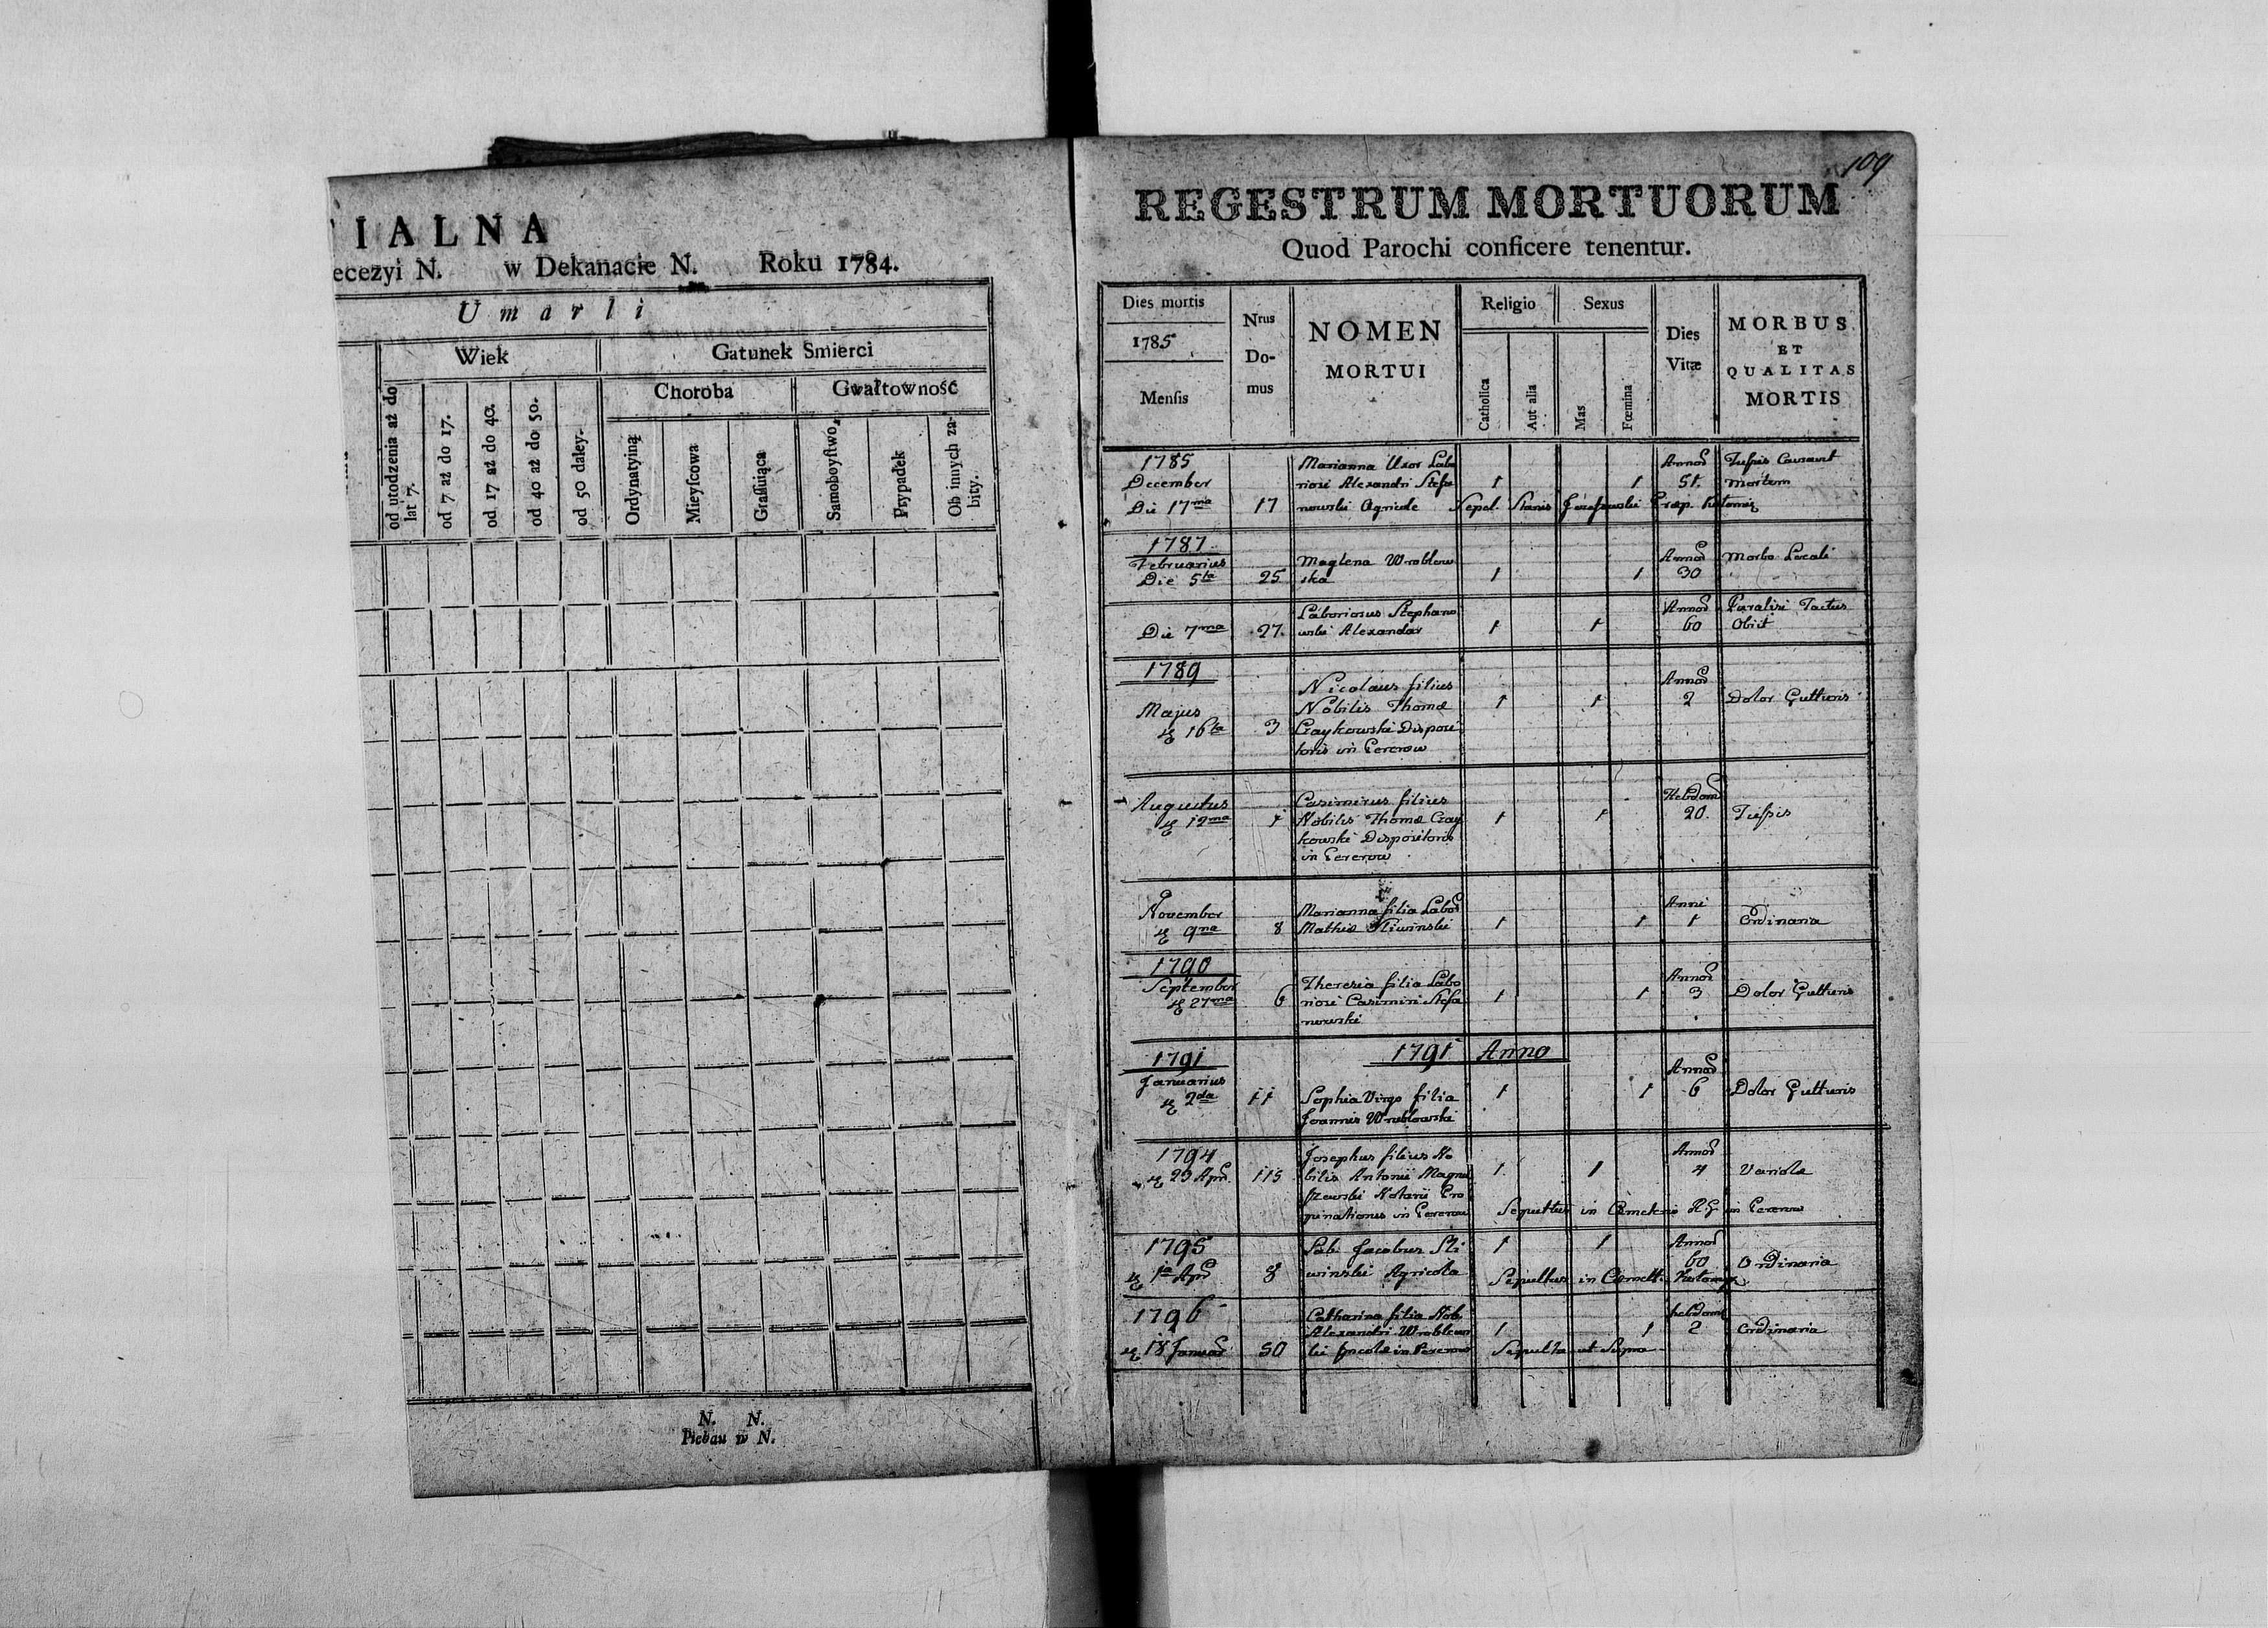 IALNA
ecezyi N. w Dekanacie N. Roku 1784.
Umarli
Wiek
Gatunek Smierci
Choroba
Gwałtowność
od urodzenia aż do lat 7.
od 7 aż do 17.
od 17 aż do 40.
od 40 aż do 50.
od 50 daley.
Ordynatyiną
Mieyſcowa
Graſſuiąca
Samoboyſtwo,
Przypadek
Ob innych za-
bity.
N. N.
Pleban w N.
109
REGESTRUM MORTUORUM
Quod Parochi conficere tenentur.
Dies mortis
1785
Menſis
Nrus
Do-
mus
NOMEN
MORTUI
Religio
Catholica
Aut alia
Sexus
Mas
Fœmina
Dies
Vitæ
MORBUS
ET
QUALITAS
MORTIS
1785
December
Die 17ma 17
Marianna Uxor Labo
riosi Alexandri Stefa
nowski Agricole
1 1
Annor
51.
Tussis Causavit
mortem
Sepel. Stanis
1787
Februarius
Die 5ta 25
Maglena Wroblew
ska
1 1
Annor
30
Morbo Locali
Die 7ma 27.
Laboriosus Stephano
wski Alexander
1 1
Annor
60
Paralisi Tactus
Obiit
1789
Majus
16ta 3
Nicolaus filius
Nobilis Thomæ
Czaykowski Disposi
toris in Cererow
1 1
Annor
2
Dolor Gutturis
Augustus
12ma 1
Casimirus filius
Nobilis Thomæ Czay
kowski Dispositoris
in Cererow
1 1
Hebdom
20.
Tussis
November
9na 8
Marianna filia Labor
Mathiæ Sliwinski
1 1
Anni
1
Ordinaria
1790
September
27ma 6
Theresia filia Labo
riosi Casimiri Stefa
nowski
1 1
Annor
3
Dolor Gutturis
1791
1791 Anno
Januarius
2da 11
Sophia Virgo filia
Joannis Wroblewski
1 1
Annor
6
Dolor Gutturis
1794
23 Apr. 115
Josephus filius No
bilis Antonii Magnu
szewski Notarii Pro
pinationis in Cererow
1 1
Annor
4
Variolæ
Sepultus in
1795
1a Apr 8
Lab. Jacobus Sli
winski Agricola
1 1
Annor
60
Ordinaria
Sepultus in
1796
18 Januar 50
Catharina filia Nob.
Alexandri Wroblew
ski Incolæ in Cererow
1 1
hebdom
2
Ordinaria
Sepulta ut Supra